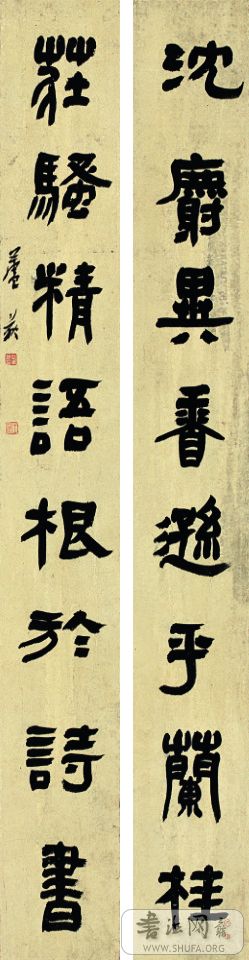 沈麝異香遜乎蘭桂
莊騷精語根於詩書
书法网
WWW.SHUFA.ORG